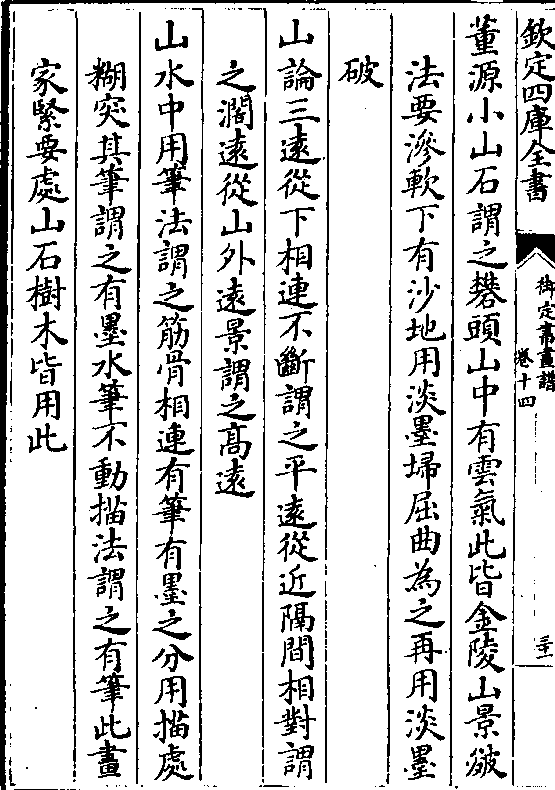 欽定四庫全書
御定書畫譜
卷十四
三十一
董源小山石謂之礬頭山中有雲氣此皆金陵山景皴
法要滲軟下有沙地用淡墨埽屈曲為之再用淡墨
破
山論三遠從下相連不斷謂之平遠從近隔間相對謂
之濶遠從山外遠景謂之髙遠
山水中用筆法謂之筋骨相連有筆有墨之分用描處
糊突其筆謂之有墨水筆不動描法謂之有筆此畫
家緊要處山石樹木皆用此